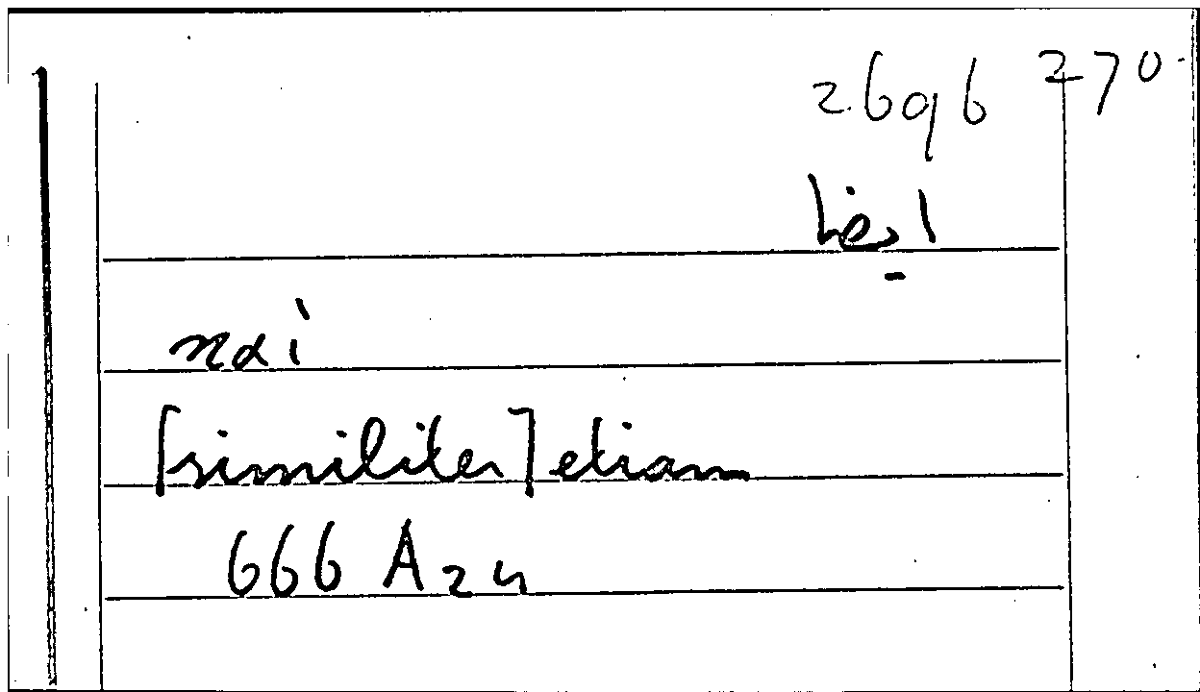 2696 270
ايضا
καὶ
[similiter] etiam
666 A24